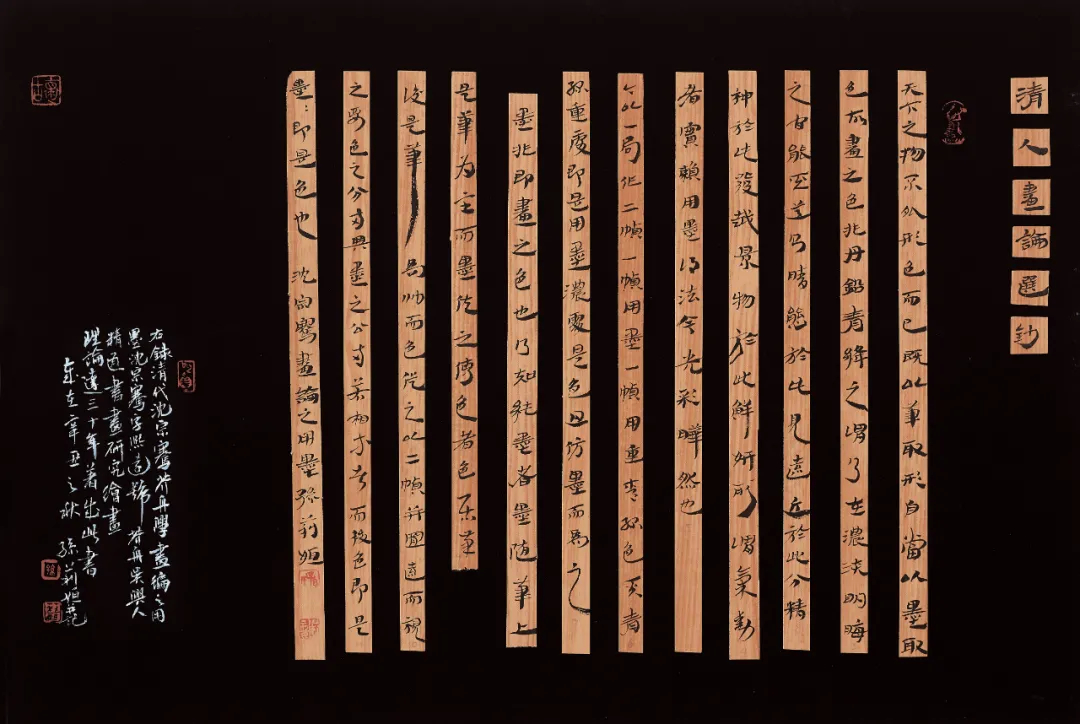 清人畫論選鈔
天下之物不外形色而已既以筆取形自當以墨取
色故畫之色非丹鉛青絳之謂乃在濃淡明晦
之間能情態於此見遠近於此分精
神於此發越景物於此鮮妍所謂氣動
者實賴用墨得法令光彩曄然也
今以一局作二幀一幀用墨一幀用重青綠色其青
綠重處即是用墨濃處是色且仿墨而為之
墨非即畫之色也乃知純墨者墨隨筆上
是筆為主而墨從之傅色者色居筆
後是筆為帥而色從之以二幀並置而視
之要色之分寸與墨之分寸若相等者而後色即是
墨〻即是色也 沈宗騫畫論之用墨 孫莉姮
右錄清代沈宗騫芥舟學畫編之用
墨沈宗騫字熙遠號芥舟吳興人
精通書畫研究繪畫
理論達三十年著出此書
歲在辛丑之秋 孫莉姮